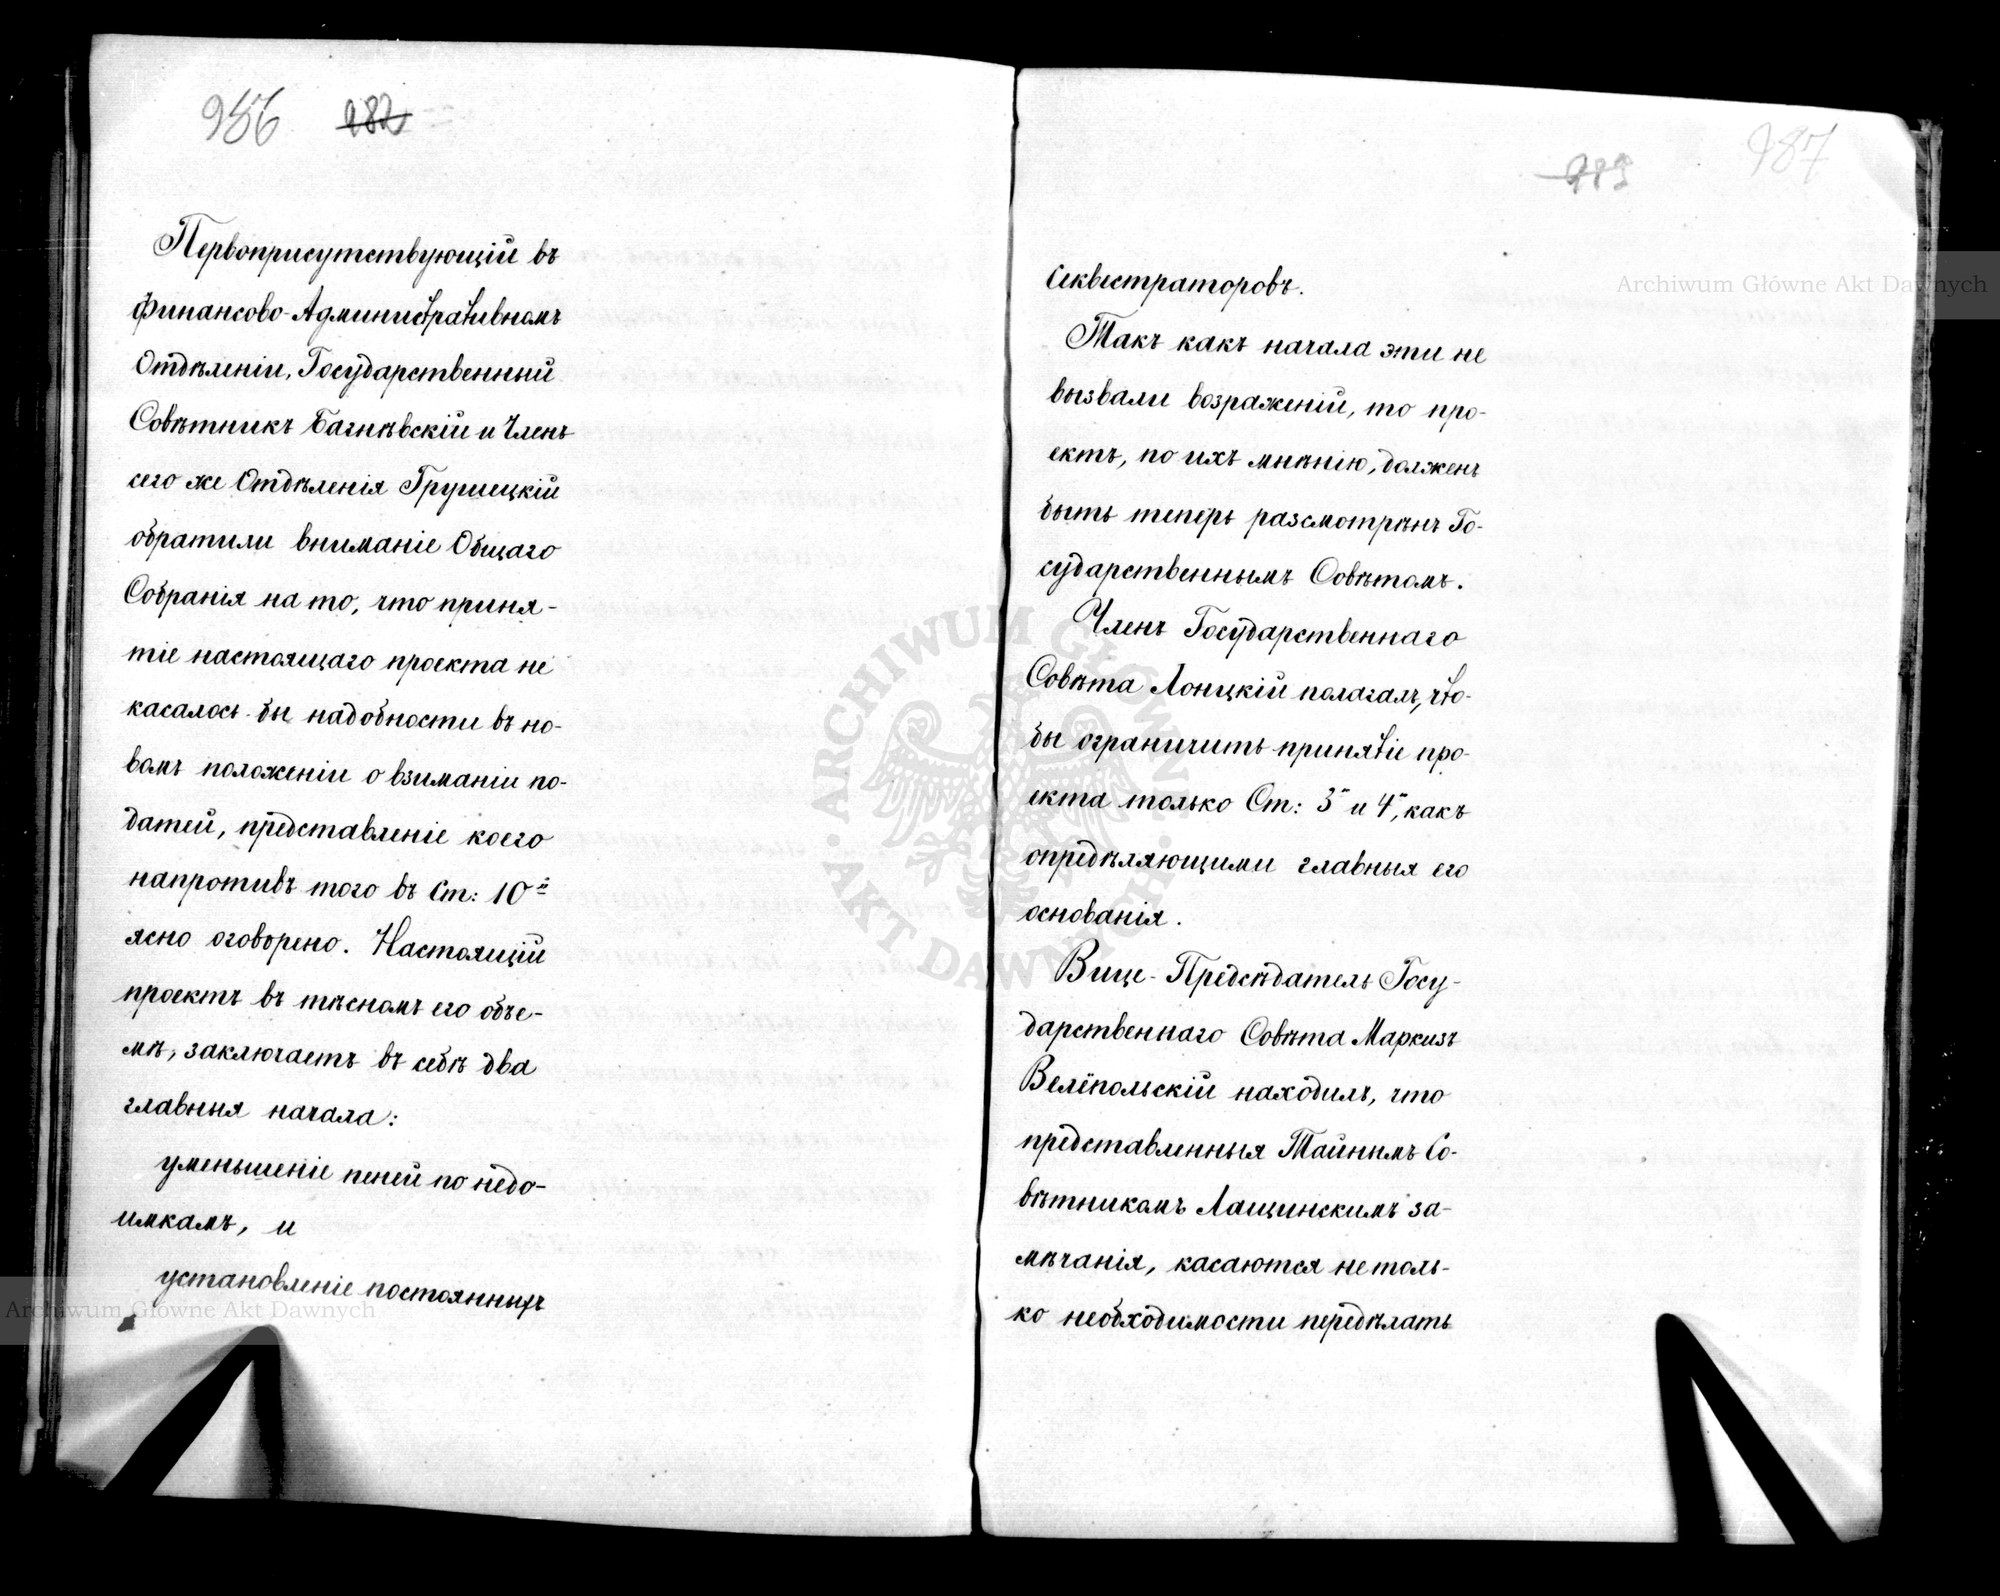 986 982
Первоприсутствующій въ
Финансово-Административномъ
Отдѣленіи, Государственный
Совѣтникъ Багнѣвскій и Членъ
сего же Отдѣленія Грушецкій
обратили вниманіе Общаго
Собранія на то, что приня-
тіе настоящаго проекта не
касалось-бы надобности въ но-
вомъ положеніи о взиманіи по-
датей, представленіе коего
напротивъ того въ Ст: 10й
ясно оговорено. Настоящій
проектъ въ тѣсномъ его объе-
мѣ, заключаетъ въ себѣ два
главныя начала:
уменьшеніе пеней по недо-
имкамъ, и
установленіе постоянныхъ
983 987
Секвестраторовъ.
Такъ какъ начала эти не
вызвали возраженій, то про-
ектъ, по ихъ мнѣнію, долженъ
быть теперь разсмотрѣнъ Го-
сударственнымъ Совѣтомъ.
Членъ Государственнаго
Совѣта Лонцкій полагалъ, что-
бы ограничить принятіе про-
екта только Ст: 3й и 4й, какъ
опредѣляющими главныя его
основанія.
Вице-Предсѣдатель Госу-
дарственнаго Совѣта Маркизъ
Велёпольскій находилъ, что
представленныя Тайнымъ Со-
вѣтникомъ Лащинскимъ за-
мѣчанія, касаются не толь-
ко необходимости передѣлать
Archiwum Główne Akt Dawnych
Archiwum Główne Akt Dawnych
ARCHIWUM GŁÓWNE · AKT DAWNYCH ·